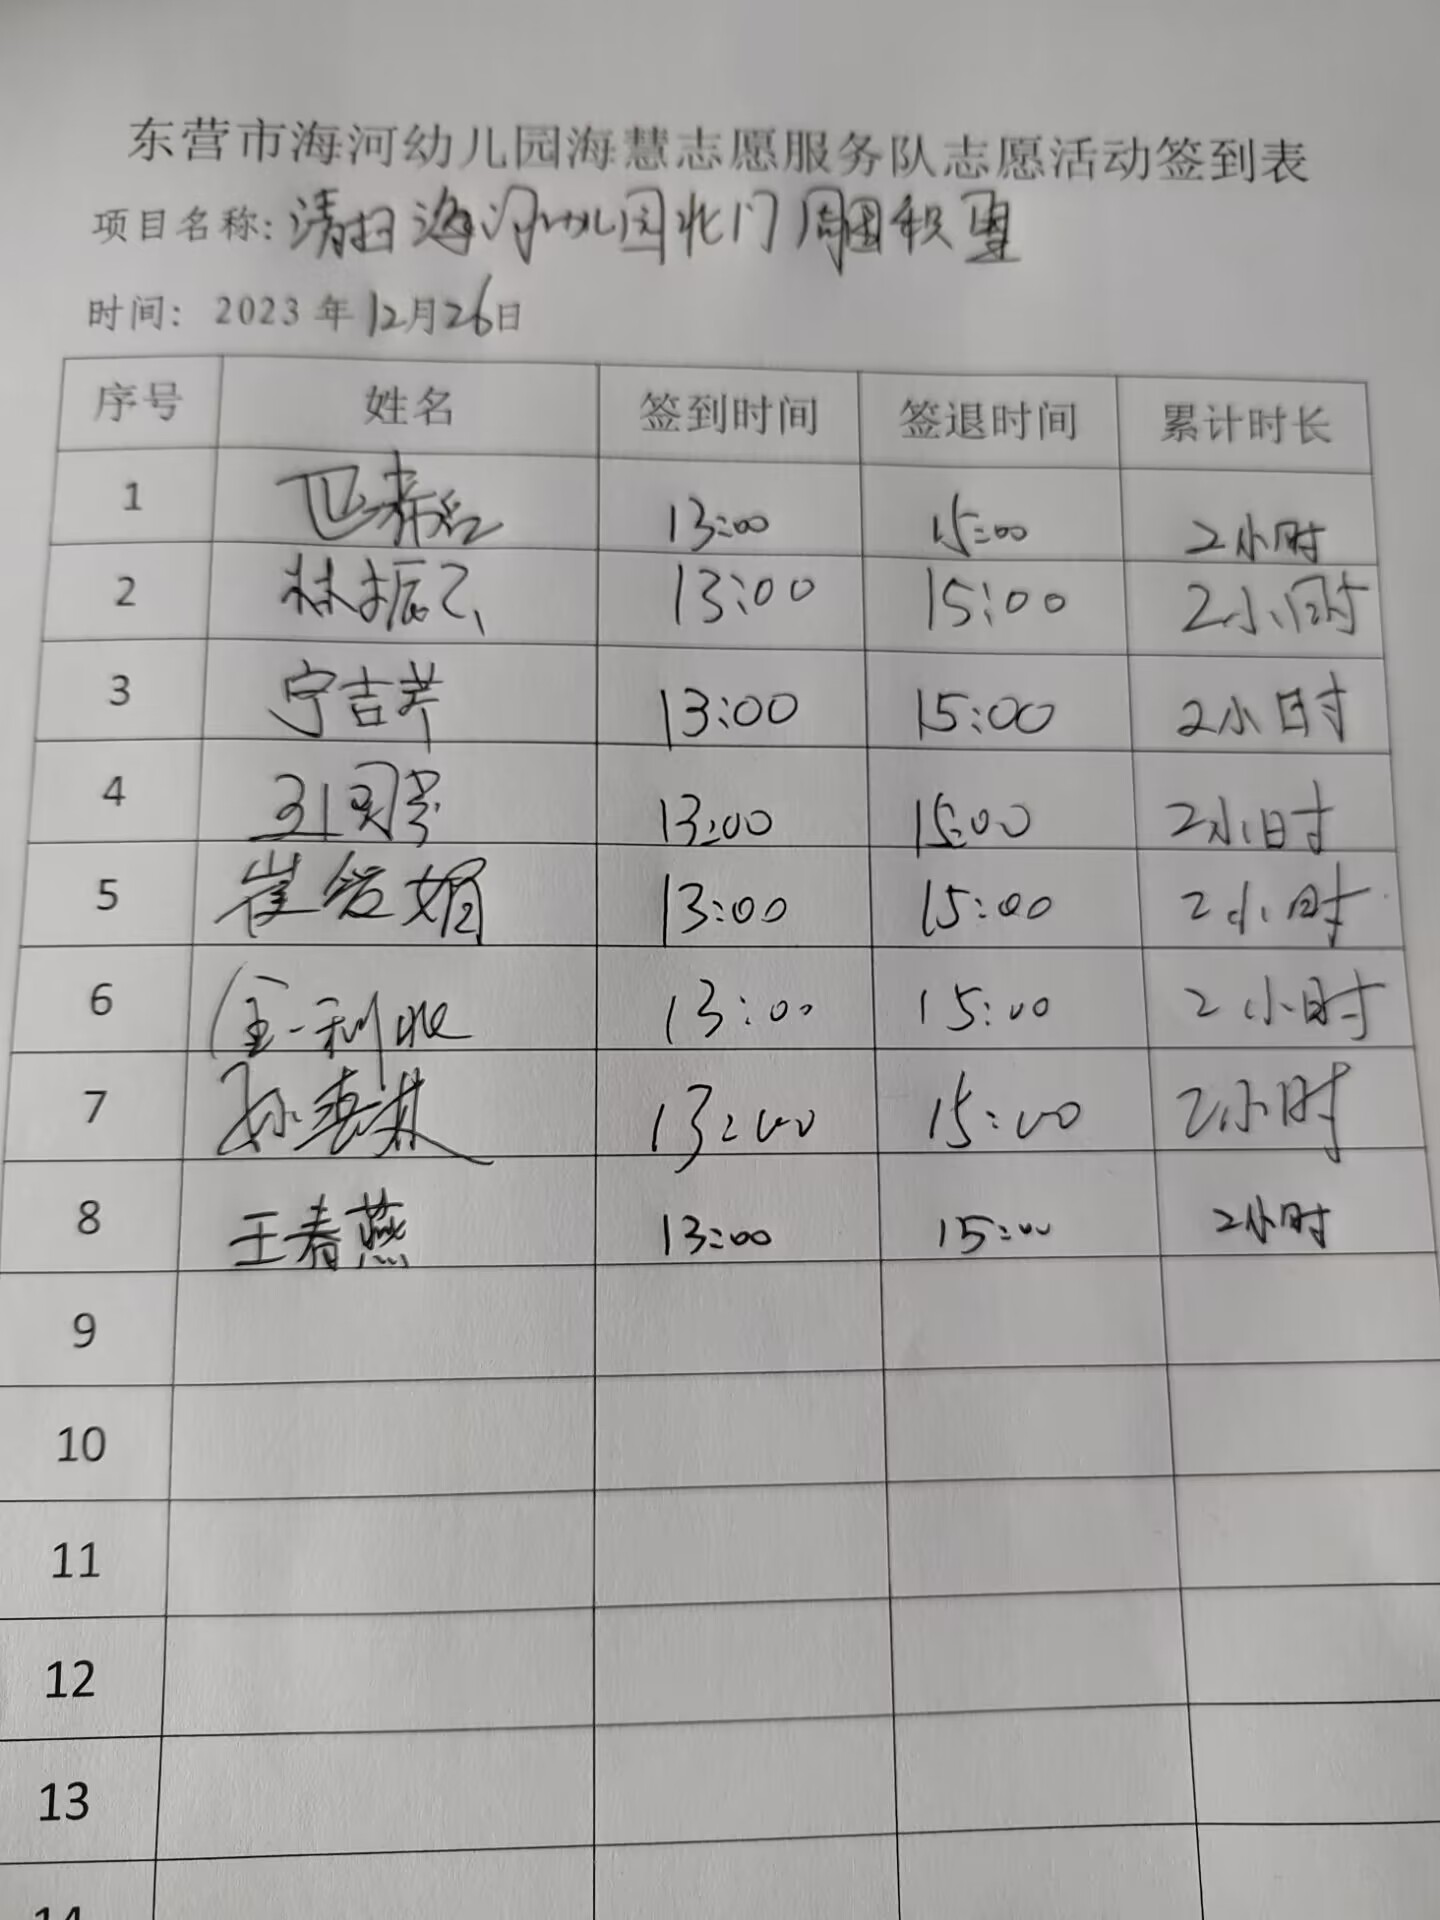 东营市海河幼儿园海慧志愿服务队志愿活动签到表
项目名称:清扫海河幼儿园北门周围积雪
时间: 2023 年12月26日
序号 姓名 签到时间 签退时间 累计时长
1 13:00 15:00 2小时
2 林振 13:00 15:00 2小时
3 宁吉 13:00 15:00 2小时
4 13:00 15:00 2小时
5 崔 媚 13:00 15:00 2小时
6 13:00 15:00 2小时
7 孙 13:00 15:00 2小时
8 王春燕 13:00 15:00 2小时
9
10
11
12
13
14